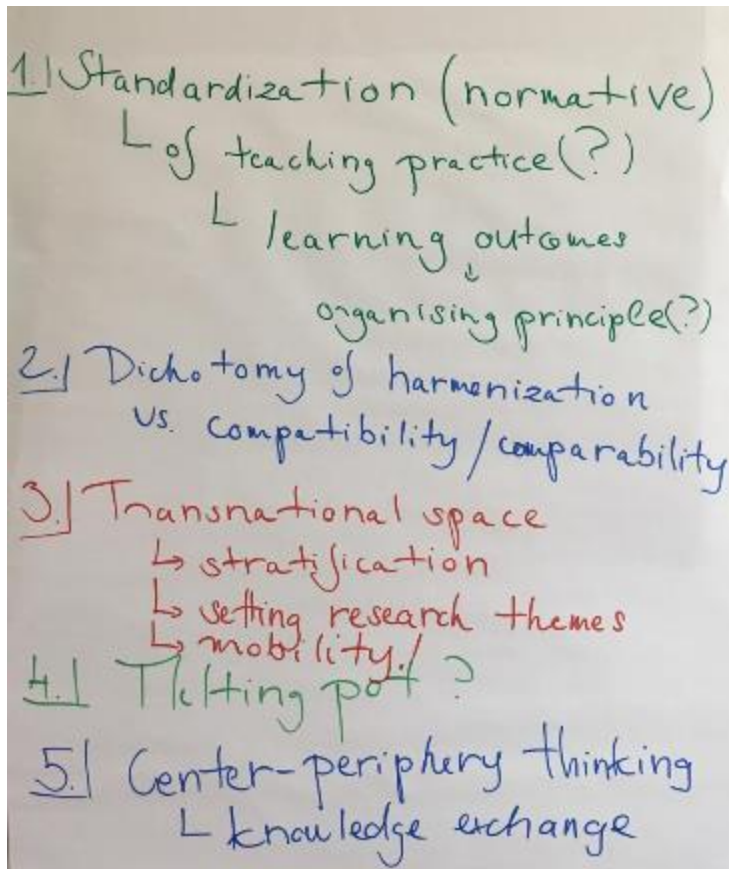 1.| Standardization (normative)
└ of teaching practice(?)
└ learning outcomes
↓
organising principle(?)
2.| Dichotomy of harmonization
vs. compatibility/comparability
3.| Transnational space
↳ stratification
↳ setting research themes
↳ mobility!
4.| Melting pot?
5.| Center-periphery thinking
└ knowledge exchange